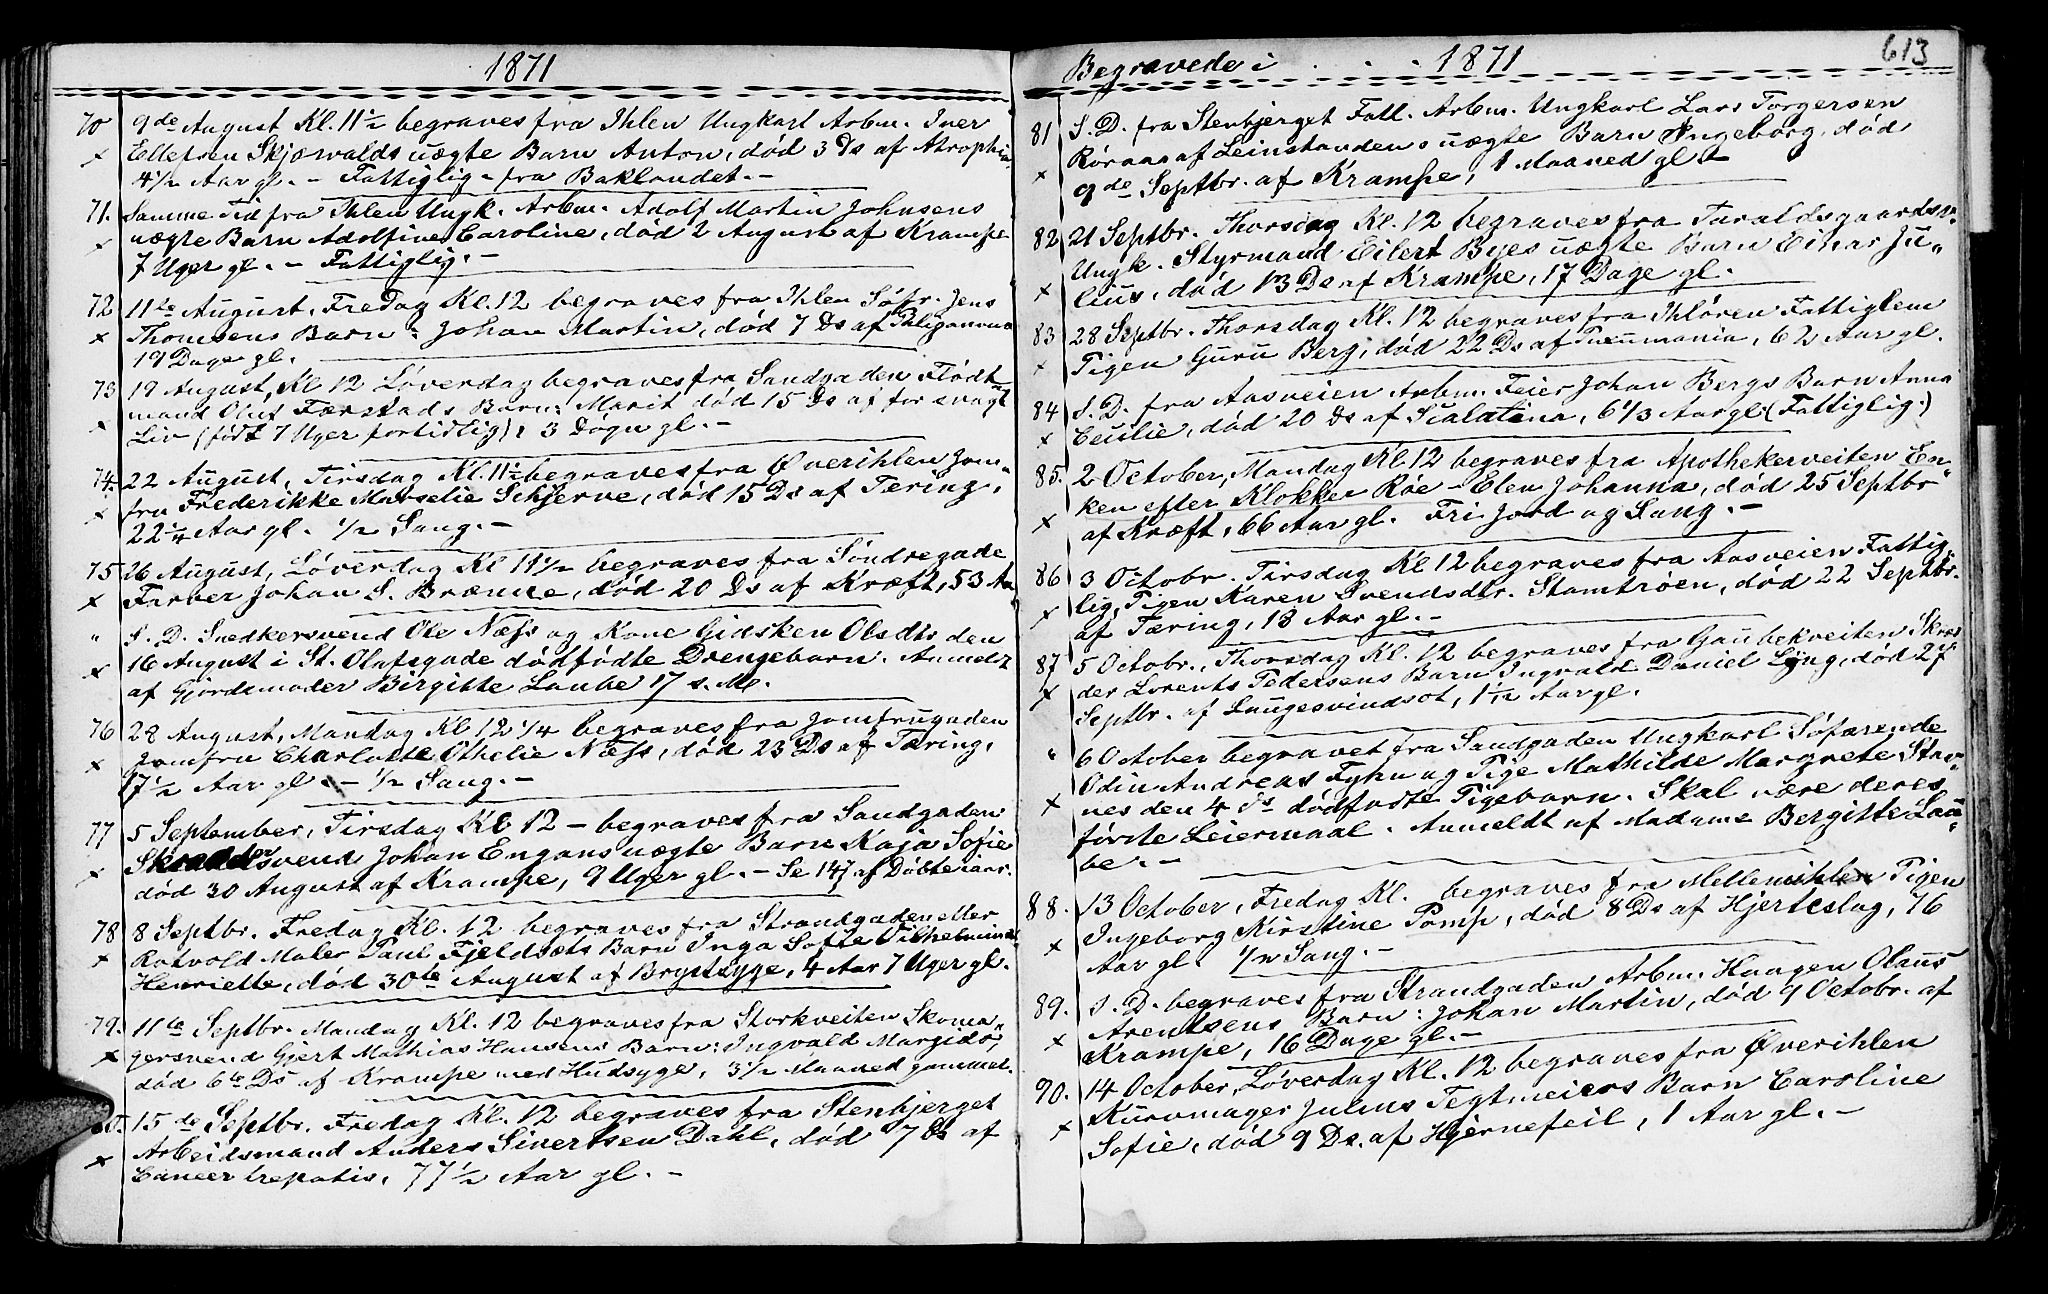 1871
70 9de August Kl. 11½ begraves fra Ihlen Ungkarl Arbm. Iver
x Ellefsen Skjøvalds uægte Barn Anton, død 3 Ds af Atrophia
4½ Aar gl. - Fattiglig - fra Baklandet. -
71. Samme Tid fra Ihlen Ungk. Arbm. Adolf Martin Johnsens
x uægte Barn Adolfine Caroline, død 2 August af Krampe
7 Uger gl. - Fattiglig. -
72 11te August, Fredag Kl. 12 begraves fra Ihlen Søfr. Jens
x Thomsens Barn: Johan Martin, død 7 Ds af
19 Dage gl.
73 19 August, Kl 12 Løverdag begraves fra Sandgaden Flødt-
mand Oluf Færstads Barn: Marit død 15 Ds af for svagt
x Liv (født 7 Uger fortidlig), 3 Døgn gl. -
74. 22 August, Tirsdag Kl. 11½ begraves fra Øverihlen Jom-
x fru Frederikke Marselie Schjerve, død 15 Ds af Tæring,
22¼ Aar gl. ½ Sang. -
75 26 August, Løverdag Kl 11½ begraves fra Søndregade
x Farver Johan S. Brænne, død 20 Ds af Kræft, 53 Aar
" S. D. Snedkersvend Ole Næss og Kone Gidsken Olsdtr den
x 16 August i St. Olafsgade dødfødte Drengebarn. Anmeldt
af Gjordemoder Birgitte Laube 17 s. M.
76 28 August, Mandag Kl 12 ¼ begraves fra Jomfrugaden
x Jomfru Charlotte Othelie Næss, død 23 Ds af Tæring,
17½ Aar gl. - ½ Sang. -
77 5 September, Tirsdag Kl 12 - begraves fra Sandgaden
x Skrædersvend Johan Engans uægte Barn Kaja Sofie
død 30 August af Krampe, 9 Uger gl. - Se 147 af Døbte iaar.
78 8 Septbr. Fredag Kl. 12 begraves fra Strandgaden eller
x Rotvold Maler Paul Fjeldsets Barn Inga Sofie Vilhelmine
Henriette, død 30te August af Brystsyge, 4 Aar 7 Uger gl.
79. 11te Septbr. Mandag Kl. 12 begraves fra Storkveiten Skoma-
x gersvend Gjert Mathias Hansens Barn: Ingvald Margido,
død 6te Ds af Krampe med Hudsyge, 3½ Maaned gammel.
80. 15de Septbr. Fredag Kl. 12 begraves fra Stenbjerget
x Arbeidsmand Anders Sivertsen Dahl, død 7 Ds af
Cancer hepatis, 77½ Aar gl. -
Begravede i . . . . 1871
613
81 S. D. fra Stenbjerget Fatl. Arbm. Ungkarl Lars Torgersen
Røraas af Leinstranden uægte Barn Ingeborg, død
x 9de Septbr. af Krampe, 1 Maaned gl -
82 21 Septbr. Thorsdag Kl. 12 begraves fra Taraldsgaardsv.
Ungk. Styrmand Eilert Byes uægte Barn Einar Ju-
x lius, død 13 Ds af Krampe, 17 Dage gl.
83 28 Septbr. Thorsdag Kl. 12 begraves fra Ihløren Fattiglem
x Pigen Guru Berg, død 22 Ds af 62 Aar gl.
84 S. D. fra Aasveien Arbm. Feier Johan Bergs Barn Anna
x Cecilie, død 20 Ds af Scalatina, 6 1/3 Aar gl. (Fattiglig.)
85. 2 October, Mandag Kl. 12 begraves fra Apothekerveiten En-
ken efter Klokker Røe - Elen Johanna, død 25 Septbr
x af Kræft, 66 Aar gl. Fri Jord og Sang. -
86 3 Octobr. Tirsdag Kl 12 begraves fra Aasveien Fattig-
lig, Pigen Karen Svendsdtr. Stamtrøen, død 22 Septbr.
x af Tæring, 18 Aar gl. -
87 5 Octobr., Thorsdag Kl. 12 begraves fra Gaubekveiten Skræ-
x der Lorents Pedersens Barn Ingvald Daniel Lyng, død 27
Septbr. af Laugesvindsot, 1½ Aar gl.
" 6 October begravet fra Sandgaden Ungkarl Søfarende
Odin Andreas Fyhn og Pige Mathilde Margrete Star-
x nes den 4 ds dødfødte Pigebarn. Skal være deres
første Leiermaal. Anmeldt af Madame Bergitte Lau-
be. -
88. 13 October, Fredag Kl. begraves fra Mellemihlen Pigen
x Ingeborg Kirstine Pomp, død 8 Ds af Hjerteslag, 76
Aar gl. ½ Sang. -
89. S. D. begraves fra Strandgaden Arbm. Haagen Olaus
x Arentsens Barn: Johan Martin, død 9 Octobr. af
Krampe, 16 Dage gl. -
90. 14 October, Løverdag Kl. 12 begraves fra Øverihlen
x Kurvmager Julius Tegtmeiers Barn Caroline
Sofie, død 9 Ds. af Hjernefeil, 1 Aar gl. -